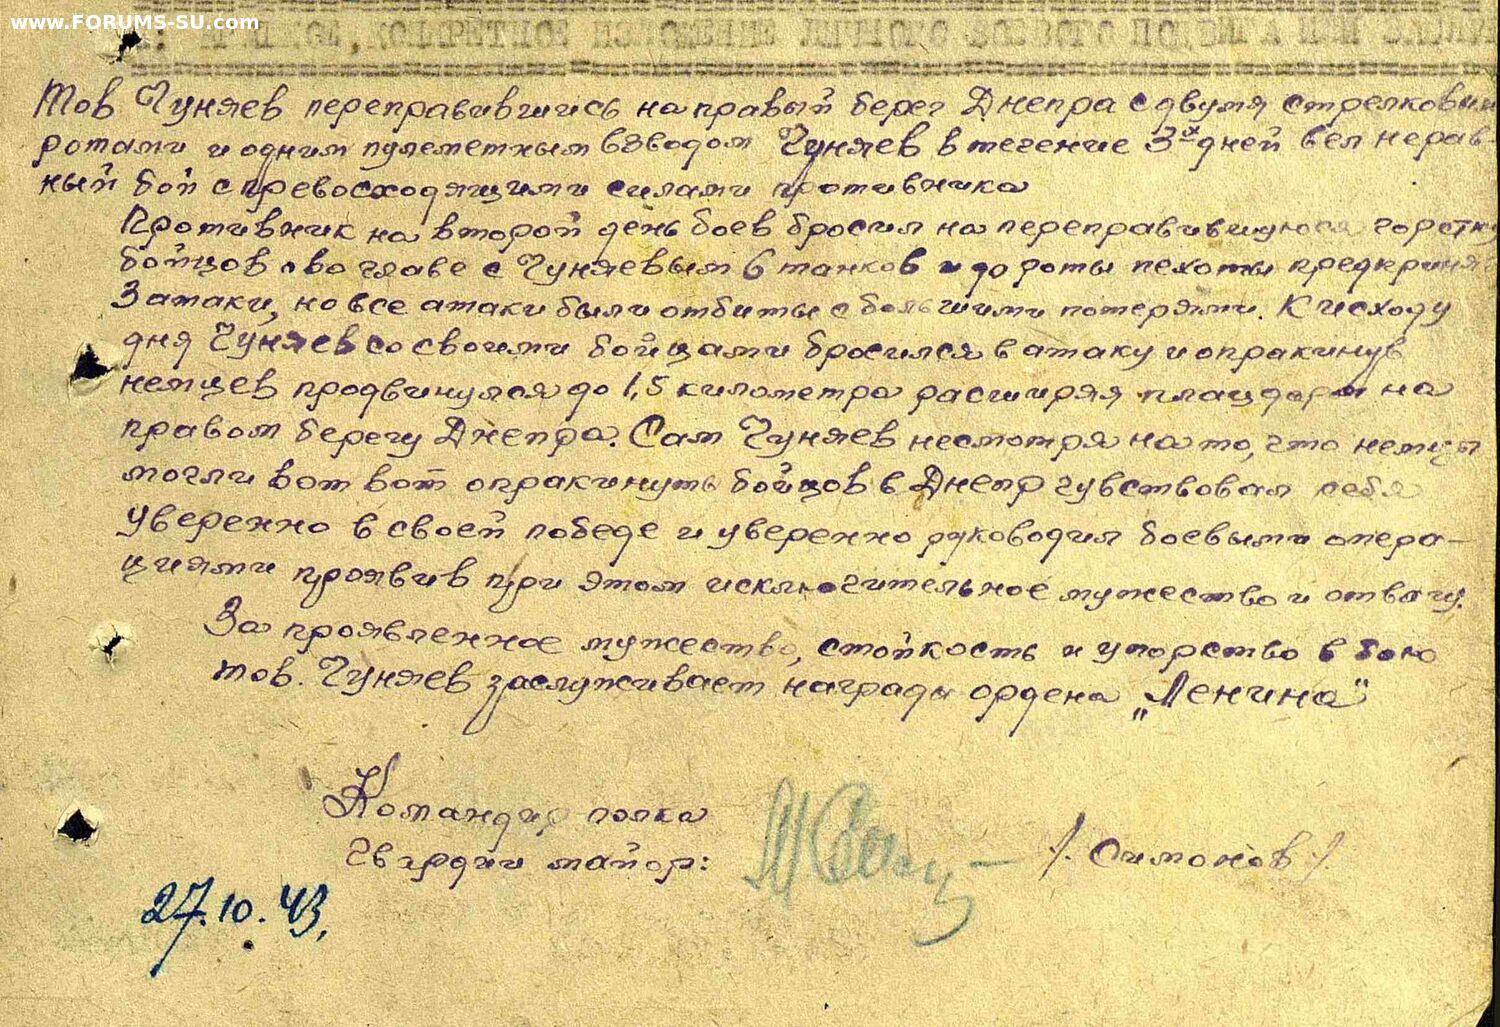 www.FORUMS-SU.com
Тов Чуняев переправившись на правый берег Днепра с двумя стрелковыми
ротами и одним пулеметным взводом Чуняев в течение 3х дней вел нерав-
ный бой с превосходящими силами противника
Противник на второй день боев бросил на переправившуюся горстку
бойцов во главе с Чуняевым 6 танков и до роты пехоты предприняв
3 атаки, но все атаки были отбиты с большими потерями. К исходу
дня Чуняев со своими бойцами бросился в атаку и опракинув
немцев продвинулся до 1,5 километра расширяя плацдарм на
правом берегу Днепра. Сам Чуняев несмотря на то, что немцы
могли вот вот опракинуть бойцов в Днепр чувствовал себя
уверенно в своей победе и уверенно руководил боевыми опера-
циями проявив при этом исключительное мужество и отвагу.
За проявленное мужество, стойкость и упорство в бою
тов. Чуняев заслуживает награды ордена „Ленина"
Командир полка
гвардии майор: /. Симонов /.
27.10.43.